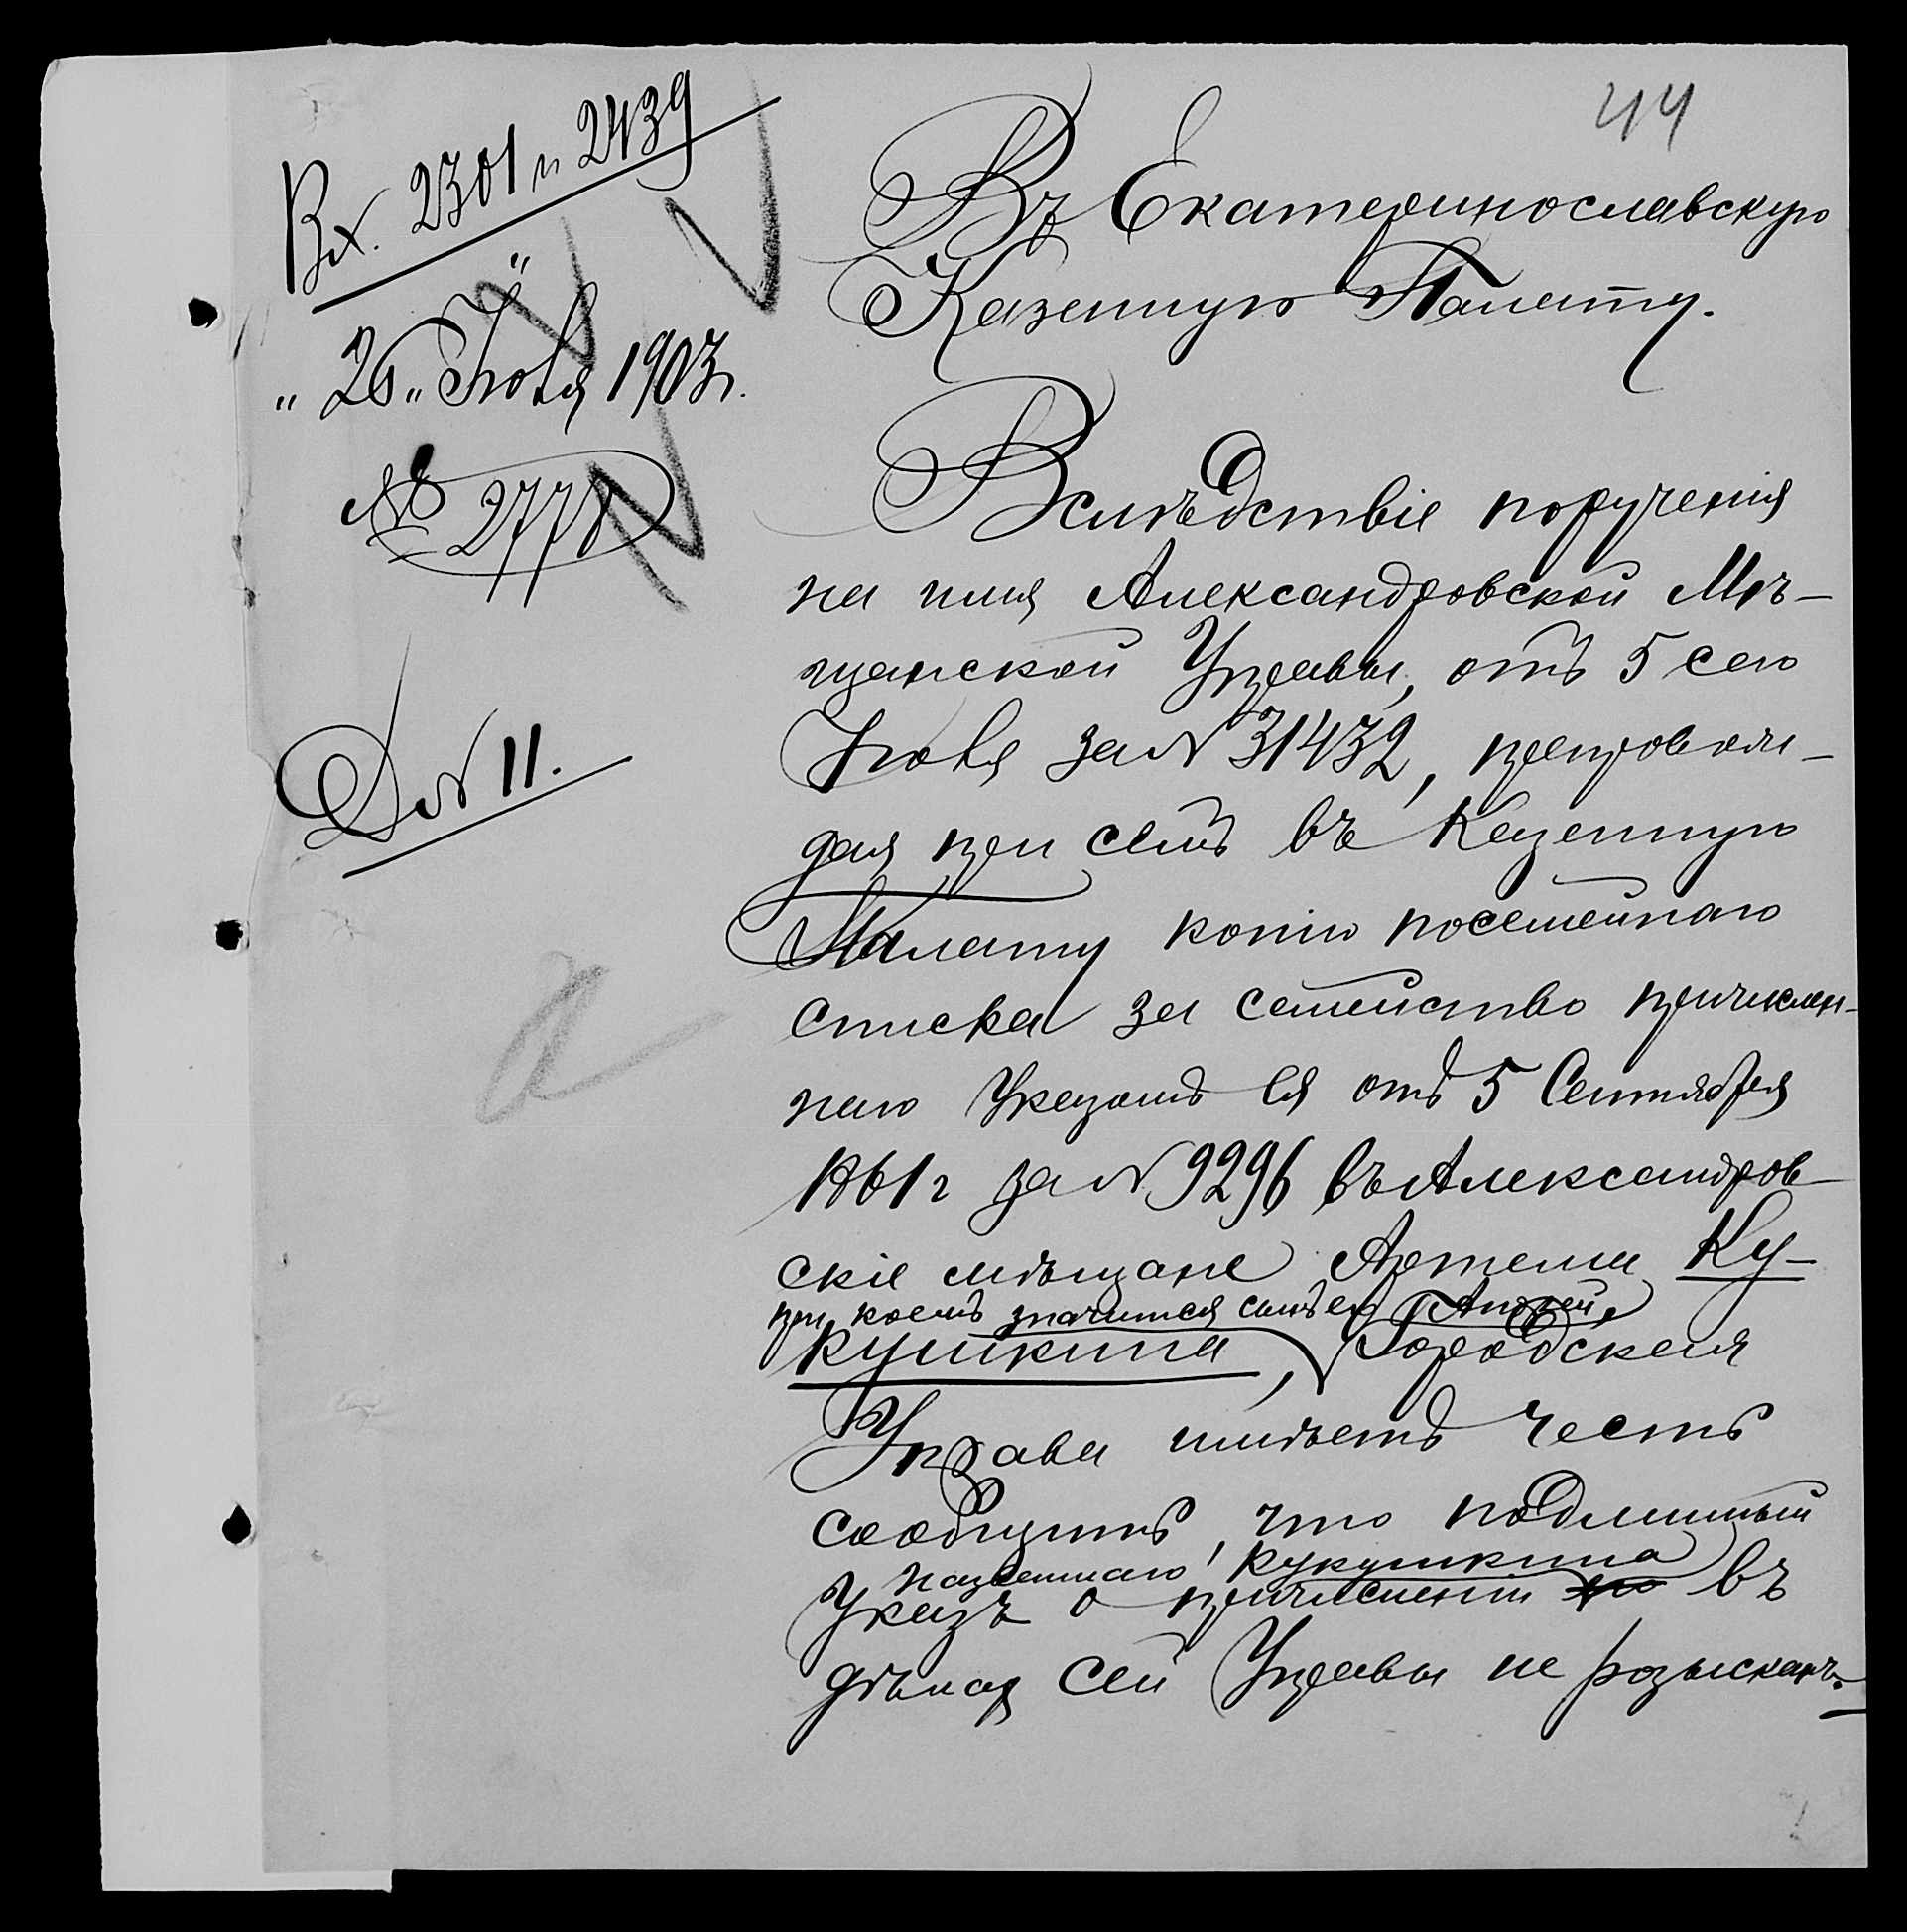 44
Вх. 2301 и 2439
„26„ Іюня 1903 г.
№ 2778
Д № 11.
Въ Екатеринославскую
Казенную Палату.
Вслѣдствіе порученія
на имя Александровской Мѣ-
щанской Управы, отъ 5 сего
Іюня за № 31432, препровож-
дая при семъ въ Казенную
Палату копію посемейнаго
списка за семейство причислен-
наго Указомъ Ея отъ 5 Сентября
1861 г за № 9296 въ Александров-
скіе мѣщане Артема Ку-
при коемъ значится сынъ его Андрей,
кушкина, Городская
Управа имѣетъ честь
сообщить, что подлинный
названнаго Кукушкина
Указъ о причисленіи въ
дѣлахъ сей Управы не розысканъ.